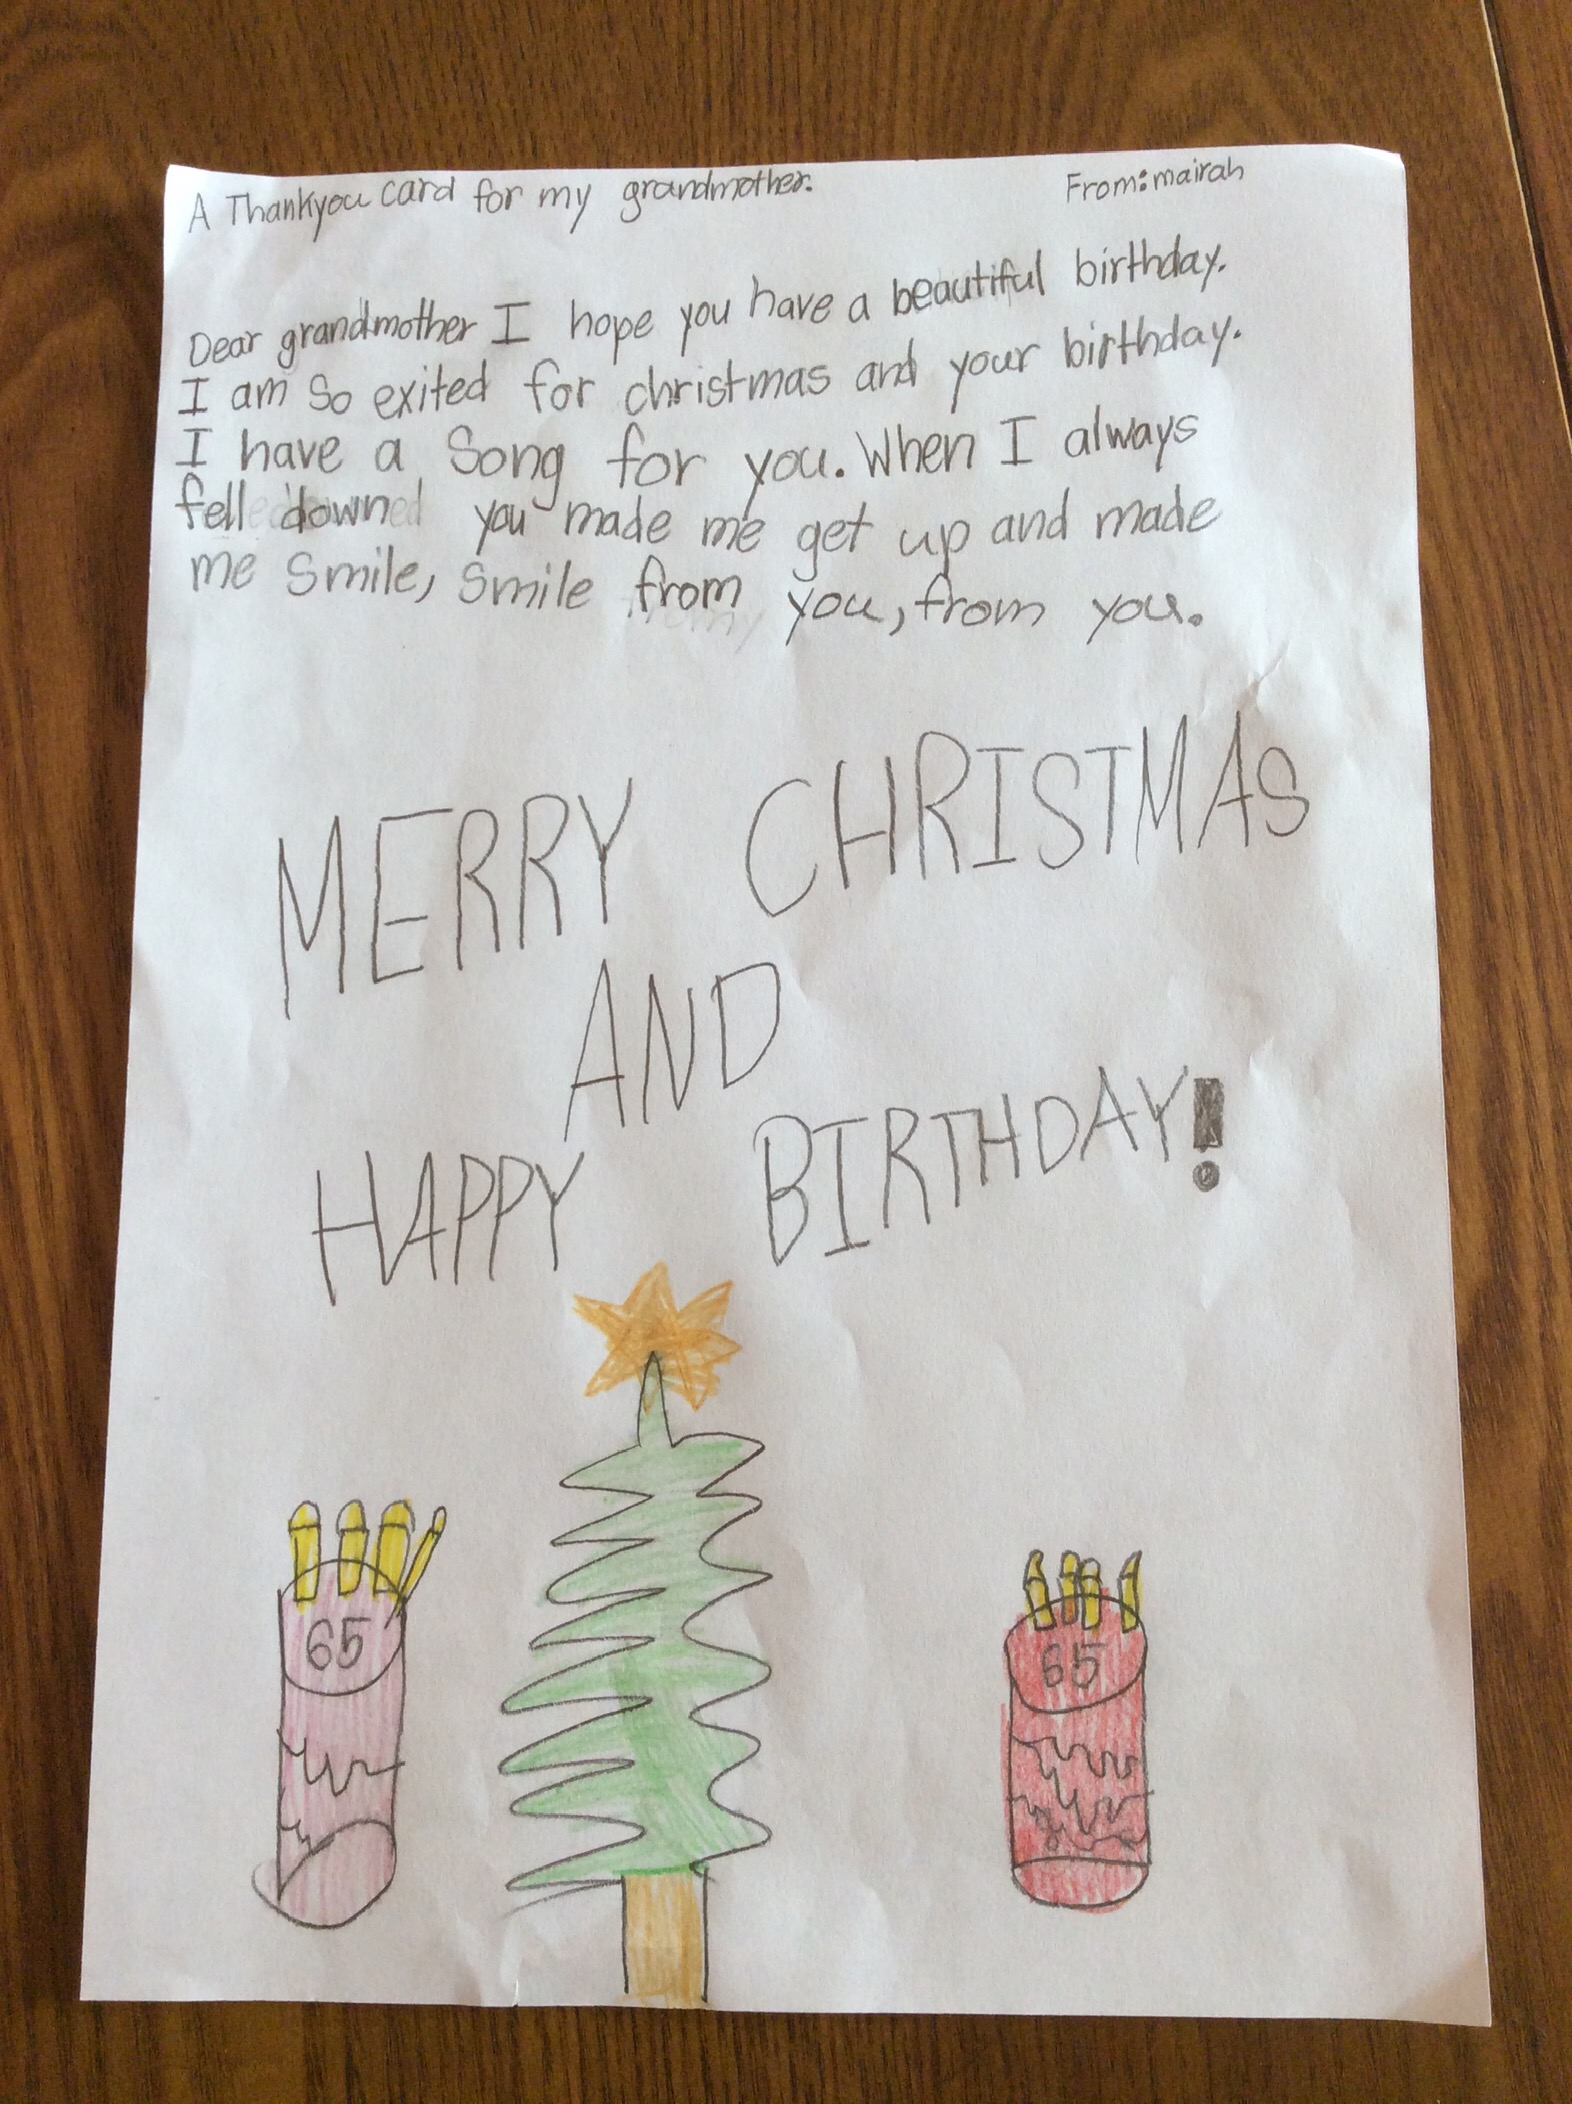 A Thankyou card for my grandmother.
From: mairah
Dear grandmother I hope you have a beautiful birthday.
I am so exited for christmas and your birthday.
I have a song for you. When I always
fell down you made me get up and made
me smile, smile from you, from you.
MERRY CHRISTMAS
AND
HAPPY BIRTHDAY!
65
65